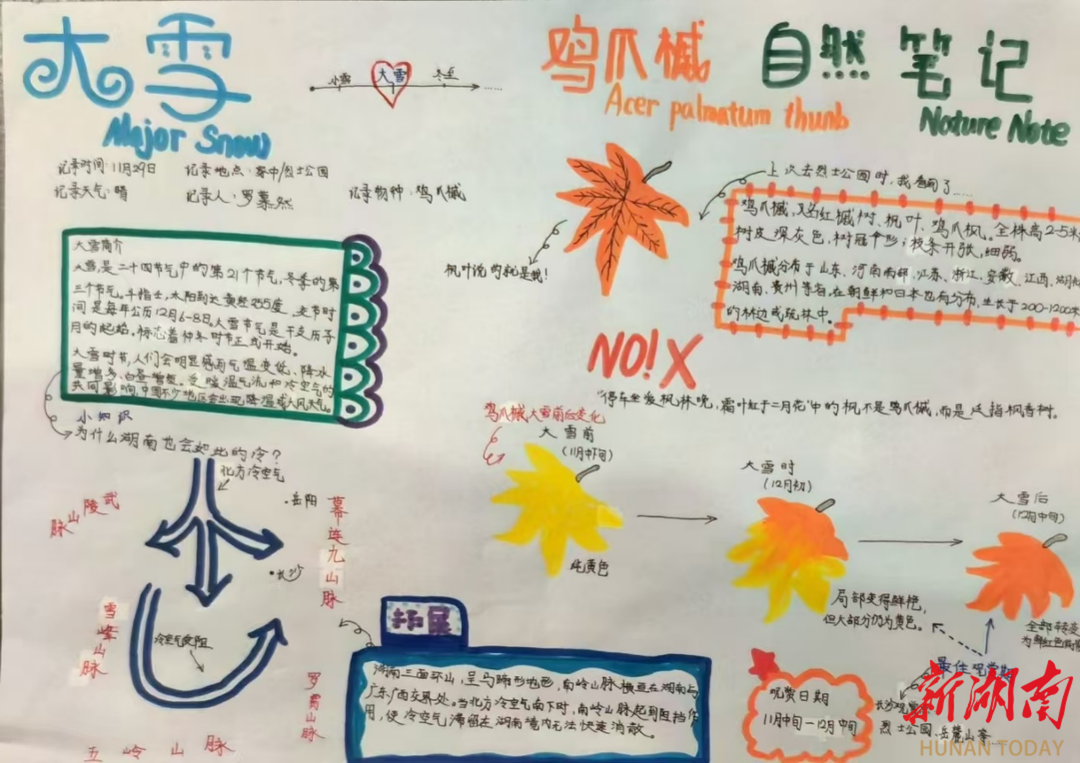 大雪
Major Snow
小雪 大雪 冬至 ......
记录时间:11月29日 记录地点:家中/烈士公园
记录天气:晴 记录人:罗 然 记录物种:鸡爪槭
鸡爪槭
Acer palmatum thunb
自然笔记
Nature Note
大雪简介
大雪,是二十四节气中的第21个节气,冬季的第
三个节气。斗指 ,太阳到达黄经255度,交节时
间是每年公历12月6-8日。大雪节气是干支历子
月的起始,标志着仲冬时节正式开始。
大雪时节,人们会明显感到气温变低、降水
量增多、 。受暖湿气流和冷空气的
共同影响,中国不少地区会出现降温或大风天气。
小知识
为什么湖南也会如此的冷?
北方冷空气
岳阳
长沙
武陵山脉
幕连九山脉
雪峰山脉
冷空气受阻
罗霄山脉
五岭山脉
拓展
湖南三面环山,呈马蹄形地形,南岭山脉横亘在湖南与
广东广西交界处。当北方冷空气南下时,南岭山脉起到阻挡作
用,使冷空气滞留在湖南境内无法快速消散。
枫叶说的就是我!
上次去烈士公园时,我看到了......
鸡爪槭,又名红槭树、枫叶、鸡爪枫。全株高2-5米
树皮深灰色,树冠伞形;枝条开张,细弱。
鸡爪槭分布于山东、河南南部、江苏、浙江、安徽、江西、湖北
湖南、贵州等省,在朝鲜和日本也有分布,生长于200-1200米
的林边或疏林中。
NO! X
“停车坐爱枫林晚,霜叶红于二月花”中的枫不是鸡爪槭,而是泛指枫香树。
鸡爪槭大雪前后变化
大雪前
(11月中下旬)
纯黄色
大雪时
(12月初)
局部变得鲜艳,
但大部分仍为黄色。
大雪后
(12月中旬)
全部转变
为鲜红色
最佳观赏期
观赏日期
11月中旬—12月中旬
长沙观赏
烈士公园、岳麓山
新湖南
HUNAN TODAY